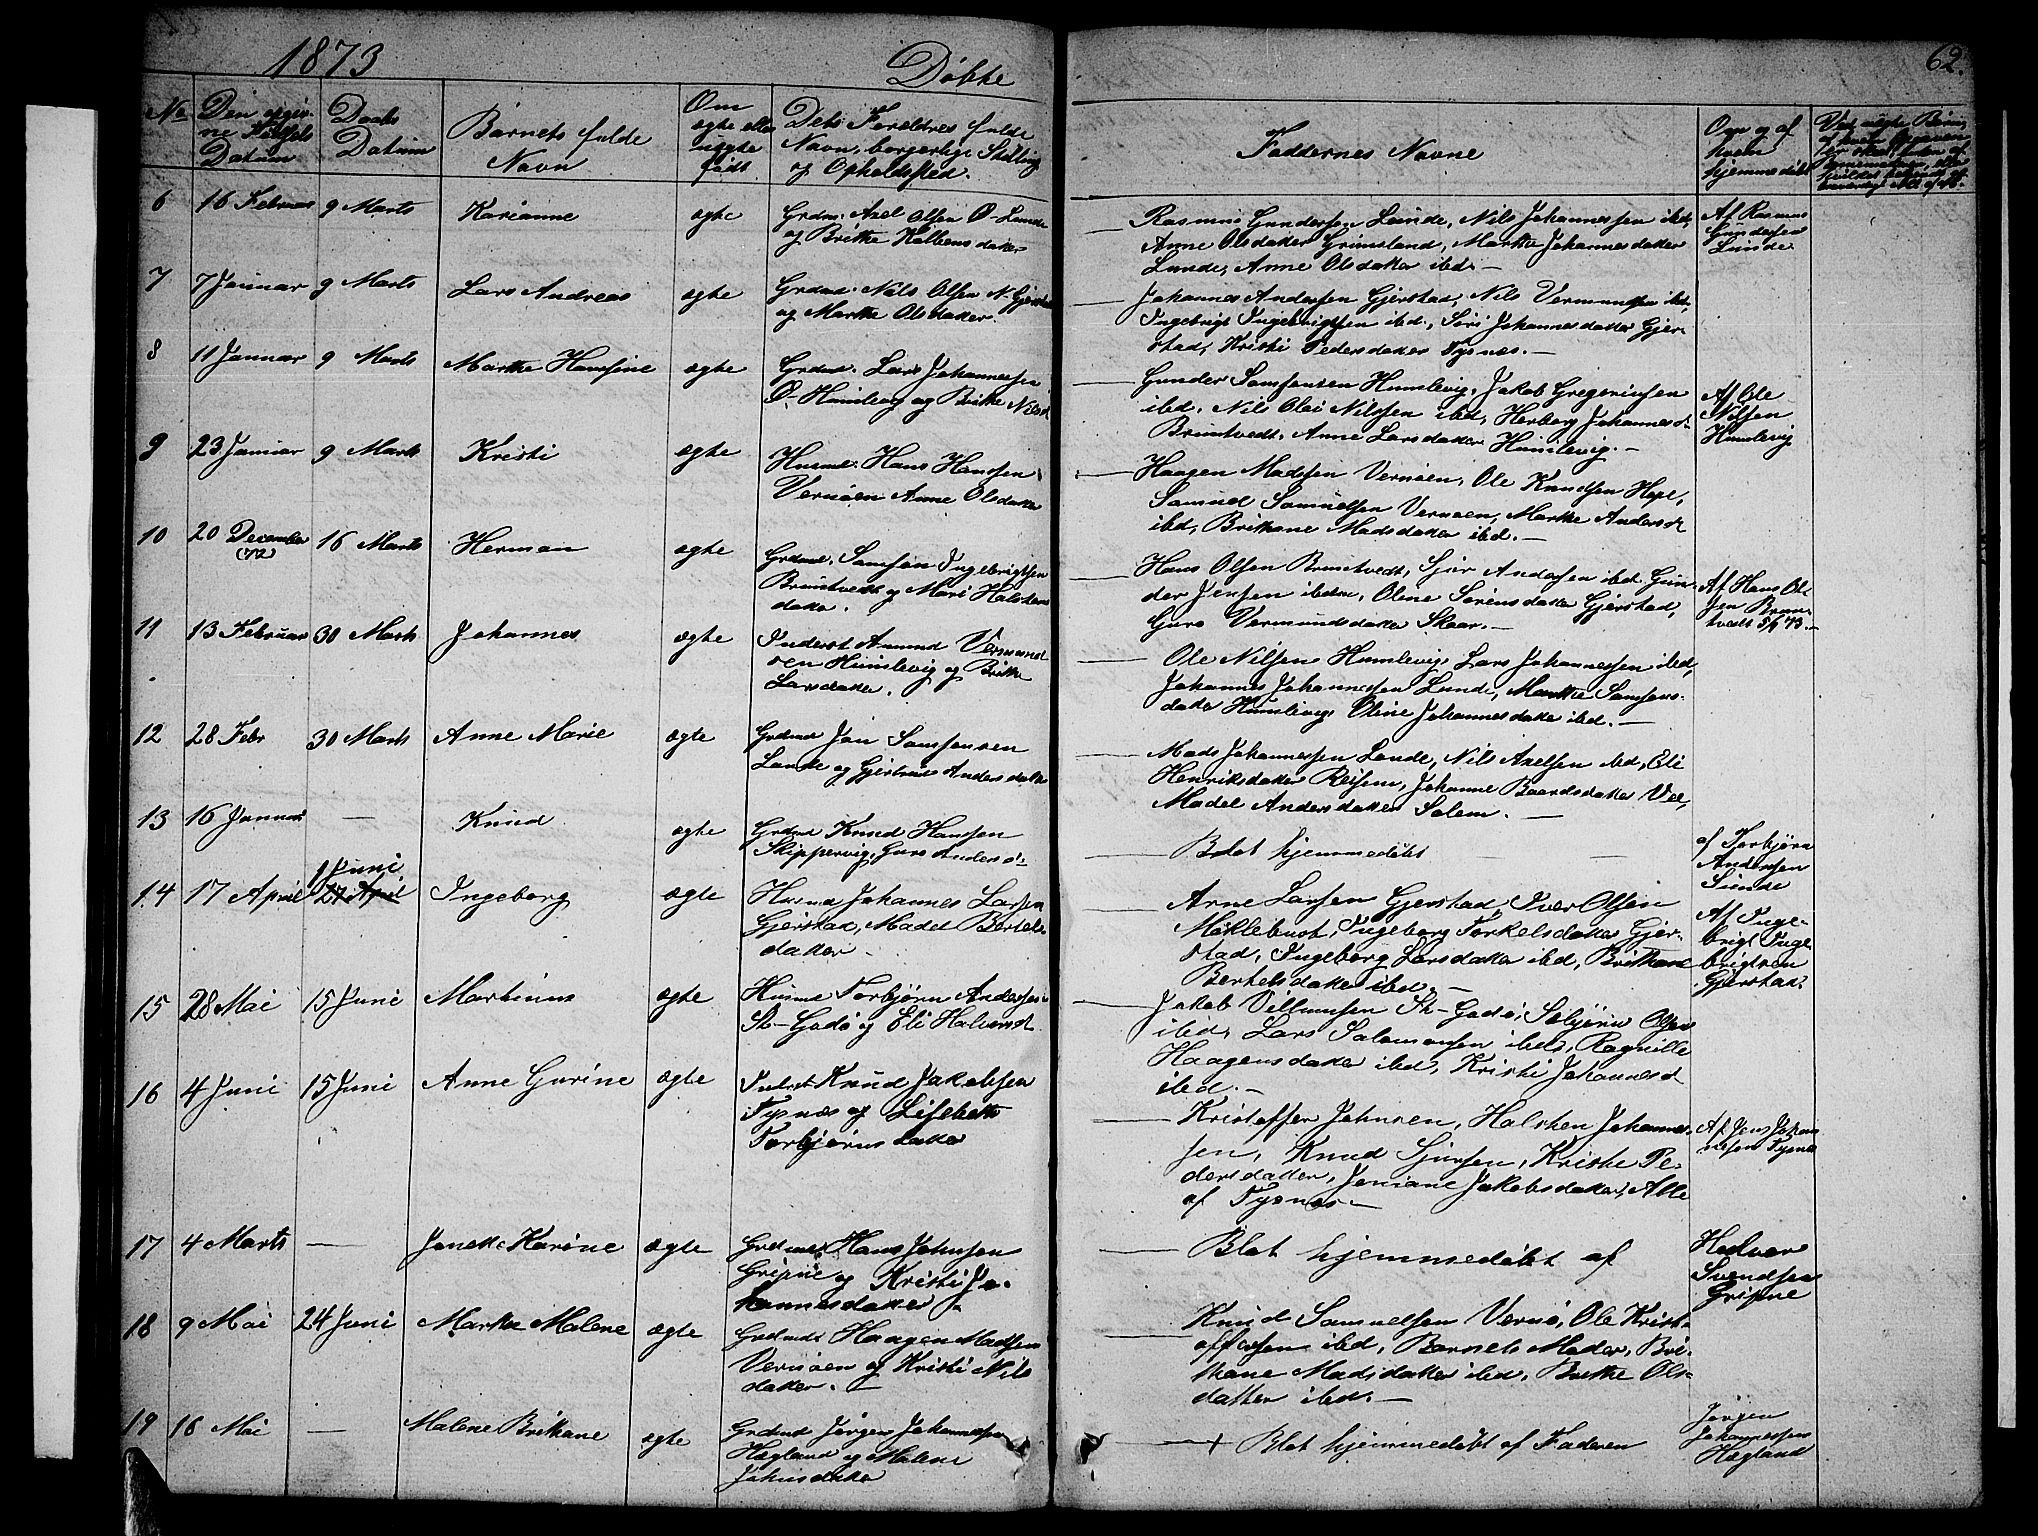 1873
Döbte
62.
No
Datum
Daabs
Datum
Barnets fulde
Navn
Om
ægte eller
uægte
født
Dets Forældres fulde
Navn, borgerlige Stilling
og Opholdssted.
Faddernes Navne
Om og af
hvem
hjemmedøbt
6
16 Februar
9 Marts
Karianne
ægte
Grdm. Axel Olsen Ø-Lunde
og Brithe
Rasmus Gundersen Lunde, Nils Johannessen ibd,
Anne Olsdatter Grimsland, Marthe Johannesdatter
Lunde, Anne Olsdatter ibd.—
Af Rasmus
Gundersen
Lunde
7
7 Januar
9 Marts
Lars Andreas
ægte
Grdmd. Nils Olsen N-Gjerstad
og Marthe Olsdatter.
Johannes Andersen Gjerstad, Nils Vermundsen ibd,
Ingebrigt Ingebrigtsen ibd., Siri Johannesdatter Gjer-
stad, Kristi Pedersdatter Tysnes.—
8
11 Januar
9 Marts
Marthe Hansine
ægte
Grdmd. Lars Johannessen
Ø-Humlevig og Brithe Nilsd.
Gunder Samsonsen Humlevig, Jakob Gregeriussen
ibd, Nils Olai Nilssen ibd, Herborg Johannesd.
Bruntvedt, Anne Larsdatter Humlevig.—
Af Ole
Nilssen
Humlevig
9
23 Januar
9 Marts
Kristi
ægte
Husmd. Hans Hanssen
Vernøen Anne Olsdatter
Haagen Madssen Vernøen, Ole Knudsen Hope,
Samuel Samuelsen Vernøen, Marthe Andersd.
ibd, Brithane Madsdatter ibd.—
10
20 December
(72)
16 Marts
Herman
ægte
Grdmd. Samson Ingebrigtsen
Bruntvedt og Mari Halstens
datter.
Hans Olsen Bruntvedt, Sjur Andersen ibd. Gun-
der Jensen ibdm, Oline Sørensdatter Gjerstad,
Guro Vermundsdatter Skaar.—
Af Hans Ol-
sen Brun-
tvedt
11
13 Februar
30 Marts
Johannes
ægte
Inderst Amund Vermund
sen Humlevig og Brithe
Larsdatter.
Ole Nilsen Humlevig, Lars Johannessen ibd,
Johannes Johannessen Lunde, Marthe Samsons-
datter Humlevig, Oline Johannesdatter ibd.—
12
28 Febr
30 Marts
Anne Marie
ægte
Grdmd Jon Samsonsen
Lunde og Gjertrud Andersdatter
Mads Johannessen Lunde, Nils Axelsen ibd, Eli
Henriksdatter Reisen, Johanne Baardsdatter Vee,
Madel Andersdatter Solem.—
13
16 Januar
—
Knud
ægte
Grdmd Knud Hanssen
Skippervig, Guro Andersd:
Blot hjemmedøbt — —
af Torbjørn
Andersen
Lunde
14
17 April
1 Juni
27 April
Ingeborg
ægte
Husmd Johannes Larsen
Gjerstad, Madel Bertels-
datter.
Arne Larsen Gjerstad Iver Olsen
Møklebust, Ingeborg Torkelsdatter Gjer-
stad, Ingeborg Larsdatter ibd, Brithane
Bertelsdatter ibd.—
Af Inge-
brigt Inge
brigtsen
Gjerstad.
15
28 Mai
15 Juni
Martinus
ægte
Husmd Torbjørn Andersen
St-Godø og Eli Halvorsd.
Jakob Villumsen St-Godø, Sebjørn Olsen
ibd, Lars Salamonsen ibd, Ragnille
Haagensdatter ibd, Kristi Johannesd
ibd.—
16
4 Juni
15 Juni
Anne Gurine
ægte
Inderst Knud Jakobsen
Tysnæs og Lisebeth
Torbjørnsdatter
Kristoffer Johnsen, Halsten Johannes-
sen, Knud Sjursen, Kristi Pe-
dersdatter, Jensiane Jakobsdatter, Alle
af Tysnæs.—
Af Jens Johan-
nessen Tysnæs
17
4 Marts
—
Jensthe Karine
ægte
Grdmd Hans Johnsen
Gripne og Kristi Jo-
hannesdatter.
Blot hjemmedøbt af
Halvor
Svendsen
Gripne
18
9 Mai
24 Juni
Marthe Malene
ægte
Grdmd Haagen Madssen
Vernøen og Kristi Nils
datter.—
Knud Samuelsen Vernø, Ole Krist-
offersen ibd, Barnets Moder, Bri-
thane Madsdatter ibd, Brithe Ols-
datter ibd.—
19
16 Mai
—
Malene Brithane
ægte
Grdmd Jørgen Johannessen
Hægland og Malene
Johnsdatter
+ Blot hjemmedøbt af Faderen
Jørgen
Johannessen
Hægland